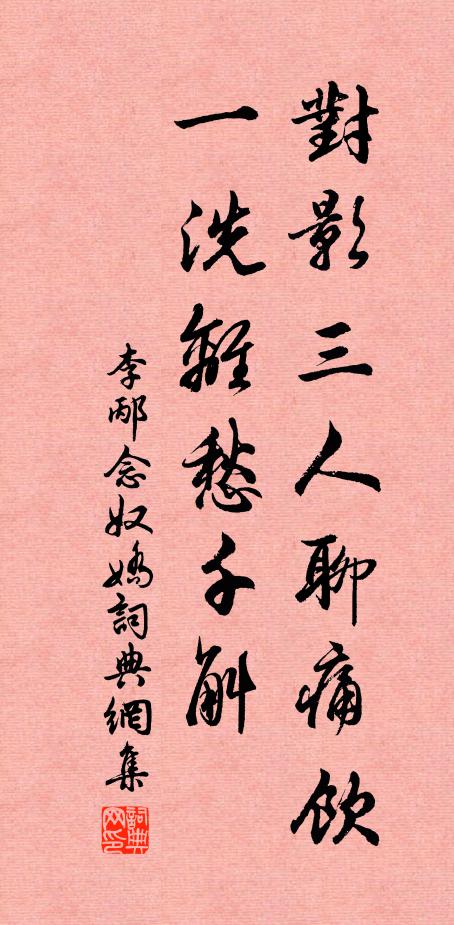 對影三人聊痛飲
一洗離愁千斛
李邴念奴嬌詞典網集
詞典网印